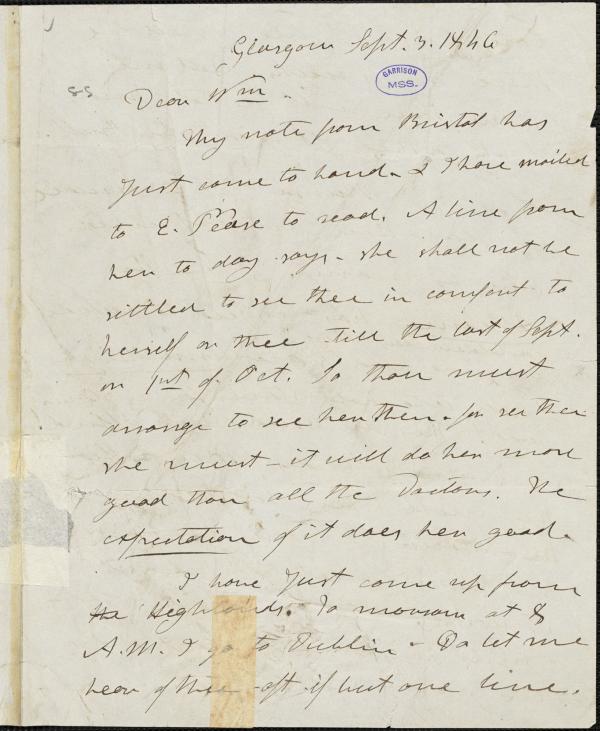 Glasgow Sept. 3. 1846
GARRISON
MSS.
85
Dear Wm.
My note from Bristol has
Just come to hand - & I have mailed
to E. Pease to read. A line from
her to day says - she shall not be
settled to see thee in comfort to
herself or thee till the last of Sept.
or 1st of Oct. So thou must
arrange to see her then - for see thee
she must - it will do her more
good than all the Doctors. The
expectation of it does her good.
I have Just come up from
the Highlands. To morrow at 8
A.M. I go to Dublin - Do let me
hear of thee - oft if but one line.